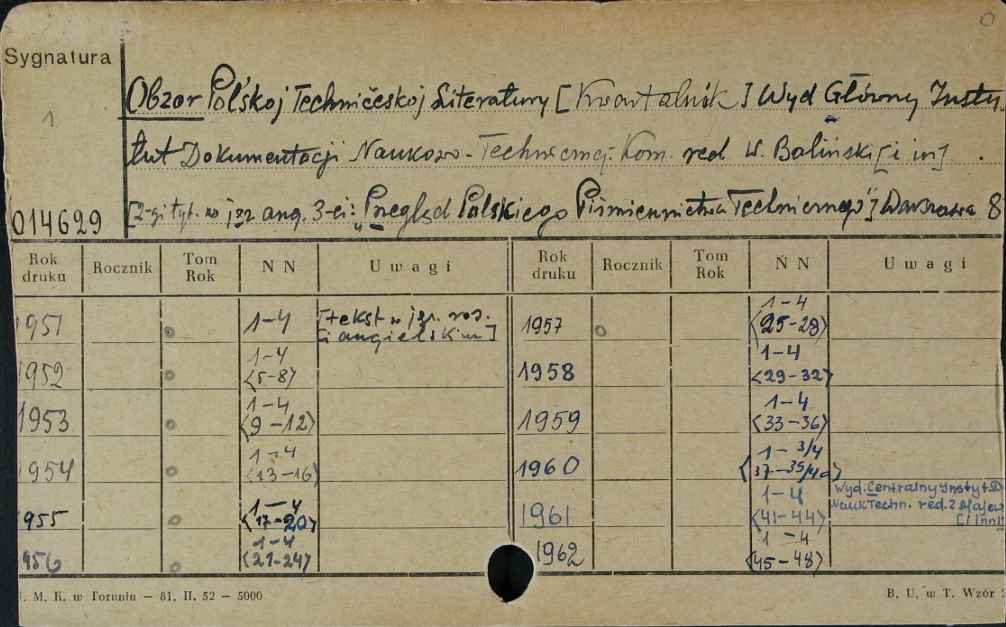 0
Sygnatura
1
Obzor Polśkoj Techničeskoj Literatury [Kwartalnik] Wyd Główny Insty-
tut Dokumentacji Naukowo-Technicznej. Kom. red W. Baliński [i in] .
014629 [2-gi tyt. w jęz ang. 3-ci: „Przegląd Polskiego Piśmiennictwa Technicznego"] Warszawa 8
Rok druku Rocznik Tom Rok NN Uwagi Rok druku Rocznik Tom Rok NN Uwagi
1951 o 1-4 [tekst w jęz. ros. i angielskim] 1957 o 1-4 <25-28>
1952 o 1-4 <5-8> 1958 1-4 <29-32>
1953 o 1-4 <9-12> 1959 1-4 <33-36>
1954 o 1-4 <13-16> 1960 1-3/4 <37-39/40>
955 o 1-4 <17-20> 1961 1-4 <41-44> Wyd. Centralny Instyt D Nauk Techn. red. Z Majew [i inni]
956 o 1-4 <21-24> 1962 1-4 <45-48>
. M. K. w Toruniu – 81. II. 52 – 5000 B. U. w T. Wzór